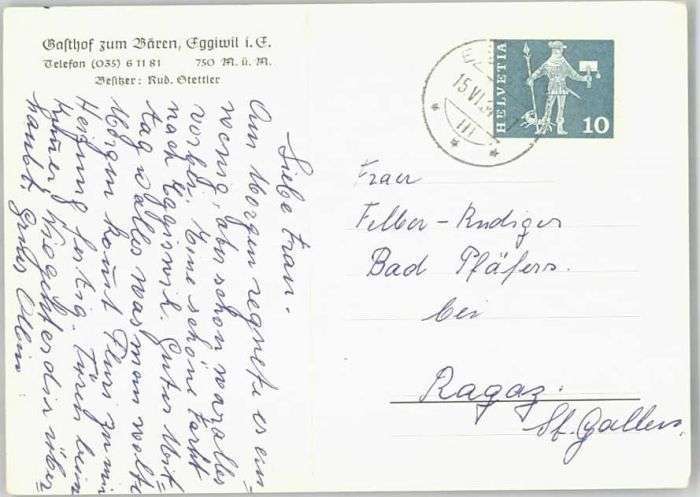 Gasthof zum Bären, Eggiwil i. E.
Telefon (035) 6 11 81 750 M. ü. M.
Besitzer: Rud. Stettler
15.VI.
III
HELVETIA
10
Liebe Frau.
Am Morgen regnete es ein
wenig, aber schon war alles
vorbei. Eine schöne Fahrt
nach Eggiwil. Guter Mit-
tag u alles was man wollte
Morgen kommt Fleuri zu mir
Heizung fertig. Türen beim
haubt. Gruss Albin
Frau
Felber-Rudiger
Bad Pfäfers.
bei
Ragaz.
St. Gallen.